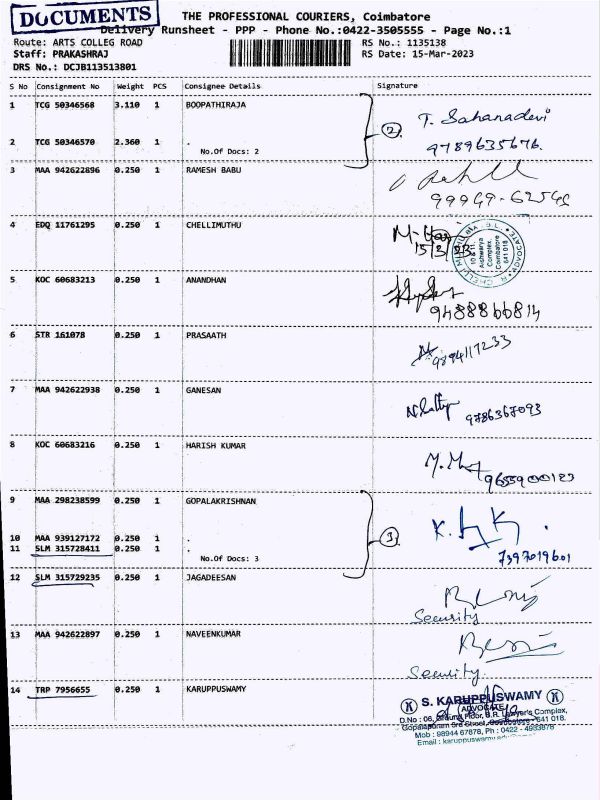 DOCUMENTS
THE PROFESSIONAL COURIERS, Coimbatore
Delivery Runsheet - PPP - Phone No.:0422-3505555 - Page No.:1
Route: ARTS COLLEG ROAD
RS No.: 1135138
Staff: PRAKASHRAJ
RS Date: 15-Mar-2023
DRS No.: DCJB113513801
S No Consignment No Weight PCS Consignee Details Signature
1 TCG 50346568 3.110 1 BOOPATHIRAJA
T. Sahanadevi
2
2 TCG 50346570 2.360 1 .
9789635676.
No.Of Docs: 2
3 MAA 942622896 0.250 1 RAMESH BABU
4 EDQ 11761295 0.250 1 CHELLIMUTHU
15/3/23
ADVOCATE
Aishwarya
Complex,
Coimbatore
641 018.
5 KOC 60683213 0.250 1 ANANDHAN
9488866814
6 STR 161078 0.250 1 PRASAATH
9894117233
7 MAA 942622938 0.250 1 GANESAN
9786367093
8 KOC 60683216 0.250 1 HARISH KUMAR
9 MAA 298238599 0.250 1 GOPALAKRISHNAN
10 MAA 939127172 0.250 1 .
3
11 SLM 315728411 0.250 1 .
No.Of Docs: 3
7397019601
12 SLM 315729235 0.250 1 JAGADEESAN
Security
13 MAA 942622897 0.250 1 NAVEENKUMAR
Security.
14 TRP 7956655 0.250 1 KARUPPUSWAMY
K S. KARUPPUSWAMY K
(ADVOCATE)
D.No : 06, Ground Floor, B.R. Lawyer's Complex,
Gopalapuram 3rd Street, Coimbatore - 641 018.
Mob : 98944 67878, Ph : 0422 -
Email :